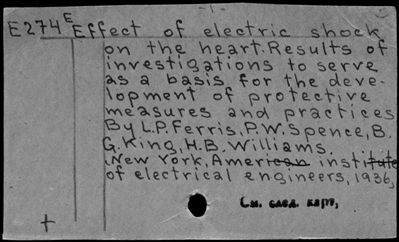 - 1 -
E274 E Effect of electric shock
on the heart. Results of
investigations to serve
as a basis for the deve-
lopment of protective
measures and practices
By L.P. Ferris, P.W. Spence, B.
G. King, H.B. Williams.
New York, American institute
of electrical engineers, 1936,
См. след. карт,
+